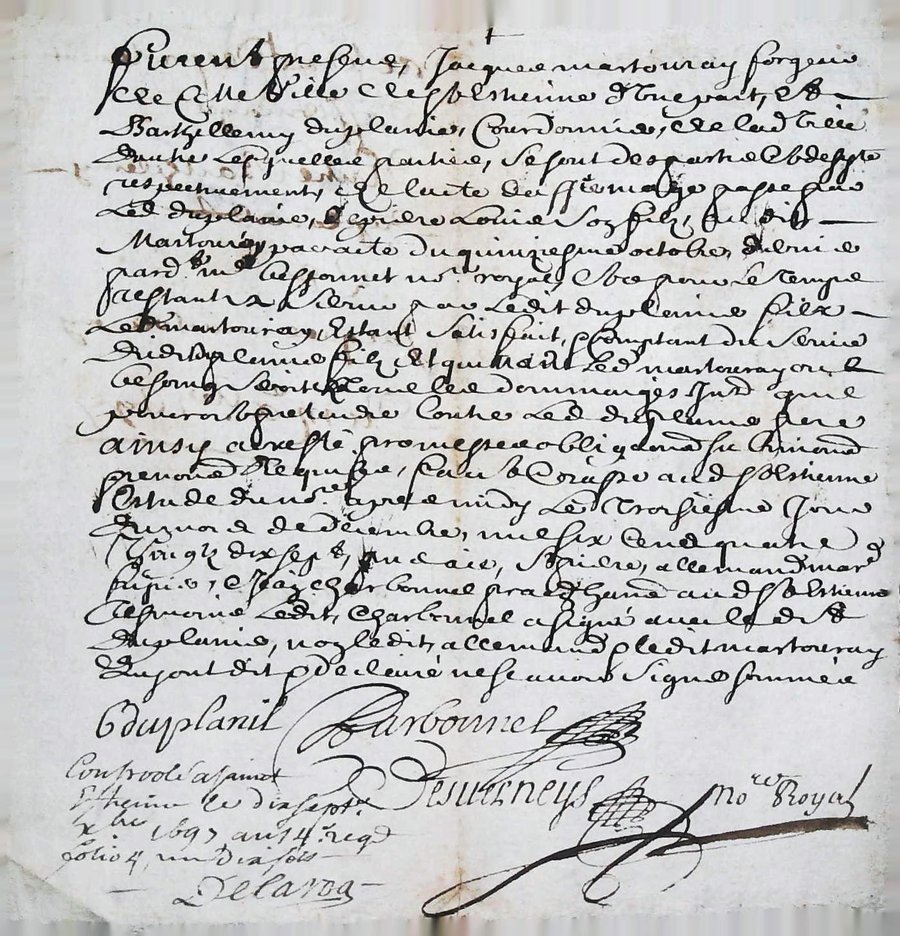 furent presens, Jacques martouray forgeur
de cette Ville de St Estienne d'Une part, Et
Barthellemy duplanie, Courdonnier, de lad Ville
dautre Lesquelles parties, se sont desparties Et desiste
respectivement, de lacte passe par
Led duplanie, Et pierre Louis Son filz, au dit
Martouray par acte du quinziesme octobre, dernier
pard.t me Bessonnet no.re royal, Et ce pour Le temps
restant a Servir par Ledit duplanie filz
Led martouray, Estant Satisfait, Et Comptant du Service
dudit duplanie filz Et quittant Led martouray ou
besoing Seroit de tous Les dommaiges Intd quil
pourroit pretendre Contre Led duplanie pere
ainsy a resté promesses obligaons
renonons requises, faict Et passe aud St Estienne
Estude du no.re apres midy Le Troisiesme Jour
du mois de decembre, mil six Cens quatre
Vingtz dix sept, presens, Sr pierre, allemand mar.d
Et Jay Charbonnel prad Hand aud St Estienne
tesmoins Ledit, Charbonnel a signé avec led
duplanie, non ledit, allemand Et ledit martouray
quont dit Et declairé ne scavoir Signer sommés
Bduplanil Charbonnel
Desverneys no.re Royal
Controolé a saint
Estienne le dix sept.e
xbre 1697 au 14.e reg.e
folio 4, un dix sols
Delaroa